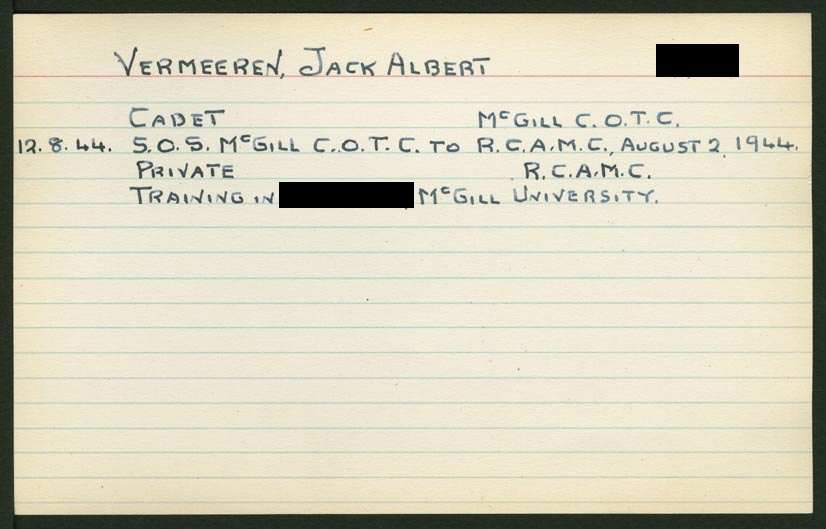 VERMEEREN, JACK ALBERT
CADET McGILL C.O.T.C.
12.8.44. S.O.S. McGILL C.O.T.C. TO R.C.A.M.C., AUGUST 2, 1944.
PRIVATE R.C.A.M.C.
TRAINING IN McGILL UNIVERSITY.